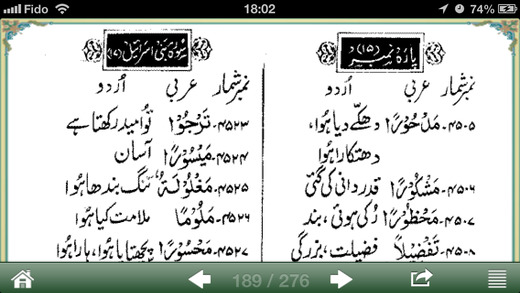 Fido 18:02 74%
پارہ نمبر (۱۵)
نمبر شمار عربی اُردو
۴۵۰۵۔ مَدْحُوْرًا دھکے دیا ہُوا،
دھتکارا ہُوا
۴۵۰۶۔ مَشْكُوْرًا قدر دانی کی گئی
۴۵۰۷۔ مَحْظُوْرًا رُکی ہوئی، بند
۴۵۰۸۔ تَفْضِيْلًا فضیلت، بزرگی
سورہ بنی اسرائیل (۱۷)
نمبر شمار عربی اُردو
۴۵۲۳۔ تَرْجُوْا تو اُمید رکھتا ہے
۴۵۲۴۔ مَيْسُوْرًا آسان
۴۵۲۵۔ مَغْلُوْلَةً تنگ بندھا ہُوا
۴۵۲۶۔ مَلُوْمًا ملامت کیا ہُوا
۴۵۲۷۔ مَحْسُوْرًا پچھتایا ہُوا، ہارا ہُوا
189 / 276